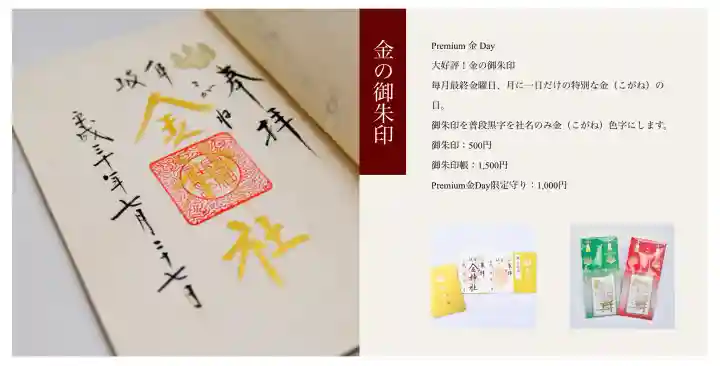 奉拝
こがね
岐阜
金
神
社
平成三十年七月二十七日
金の御朱印
Premium 金 Day
大好評！金の御朱印
毎月最終金曜日、月に一日だけの特別な金（こがね）の
日。
御朱印を普段黒字を社名のみ金（こがね）色字にします。
御朱印：500円
御朱印帳：1,500円
Premium金Day限定守り：1,000円
奉拝
金神社